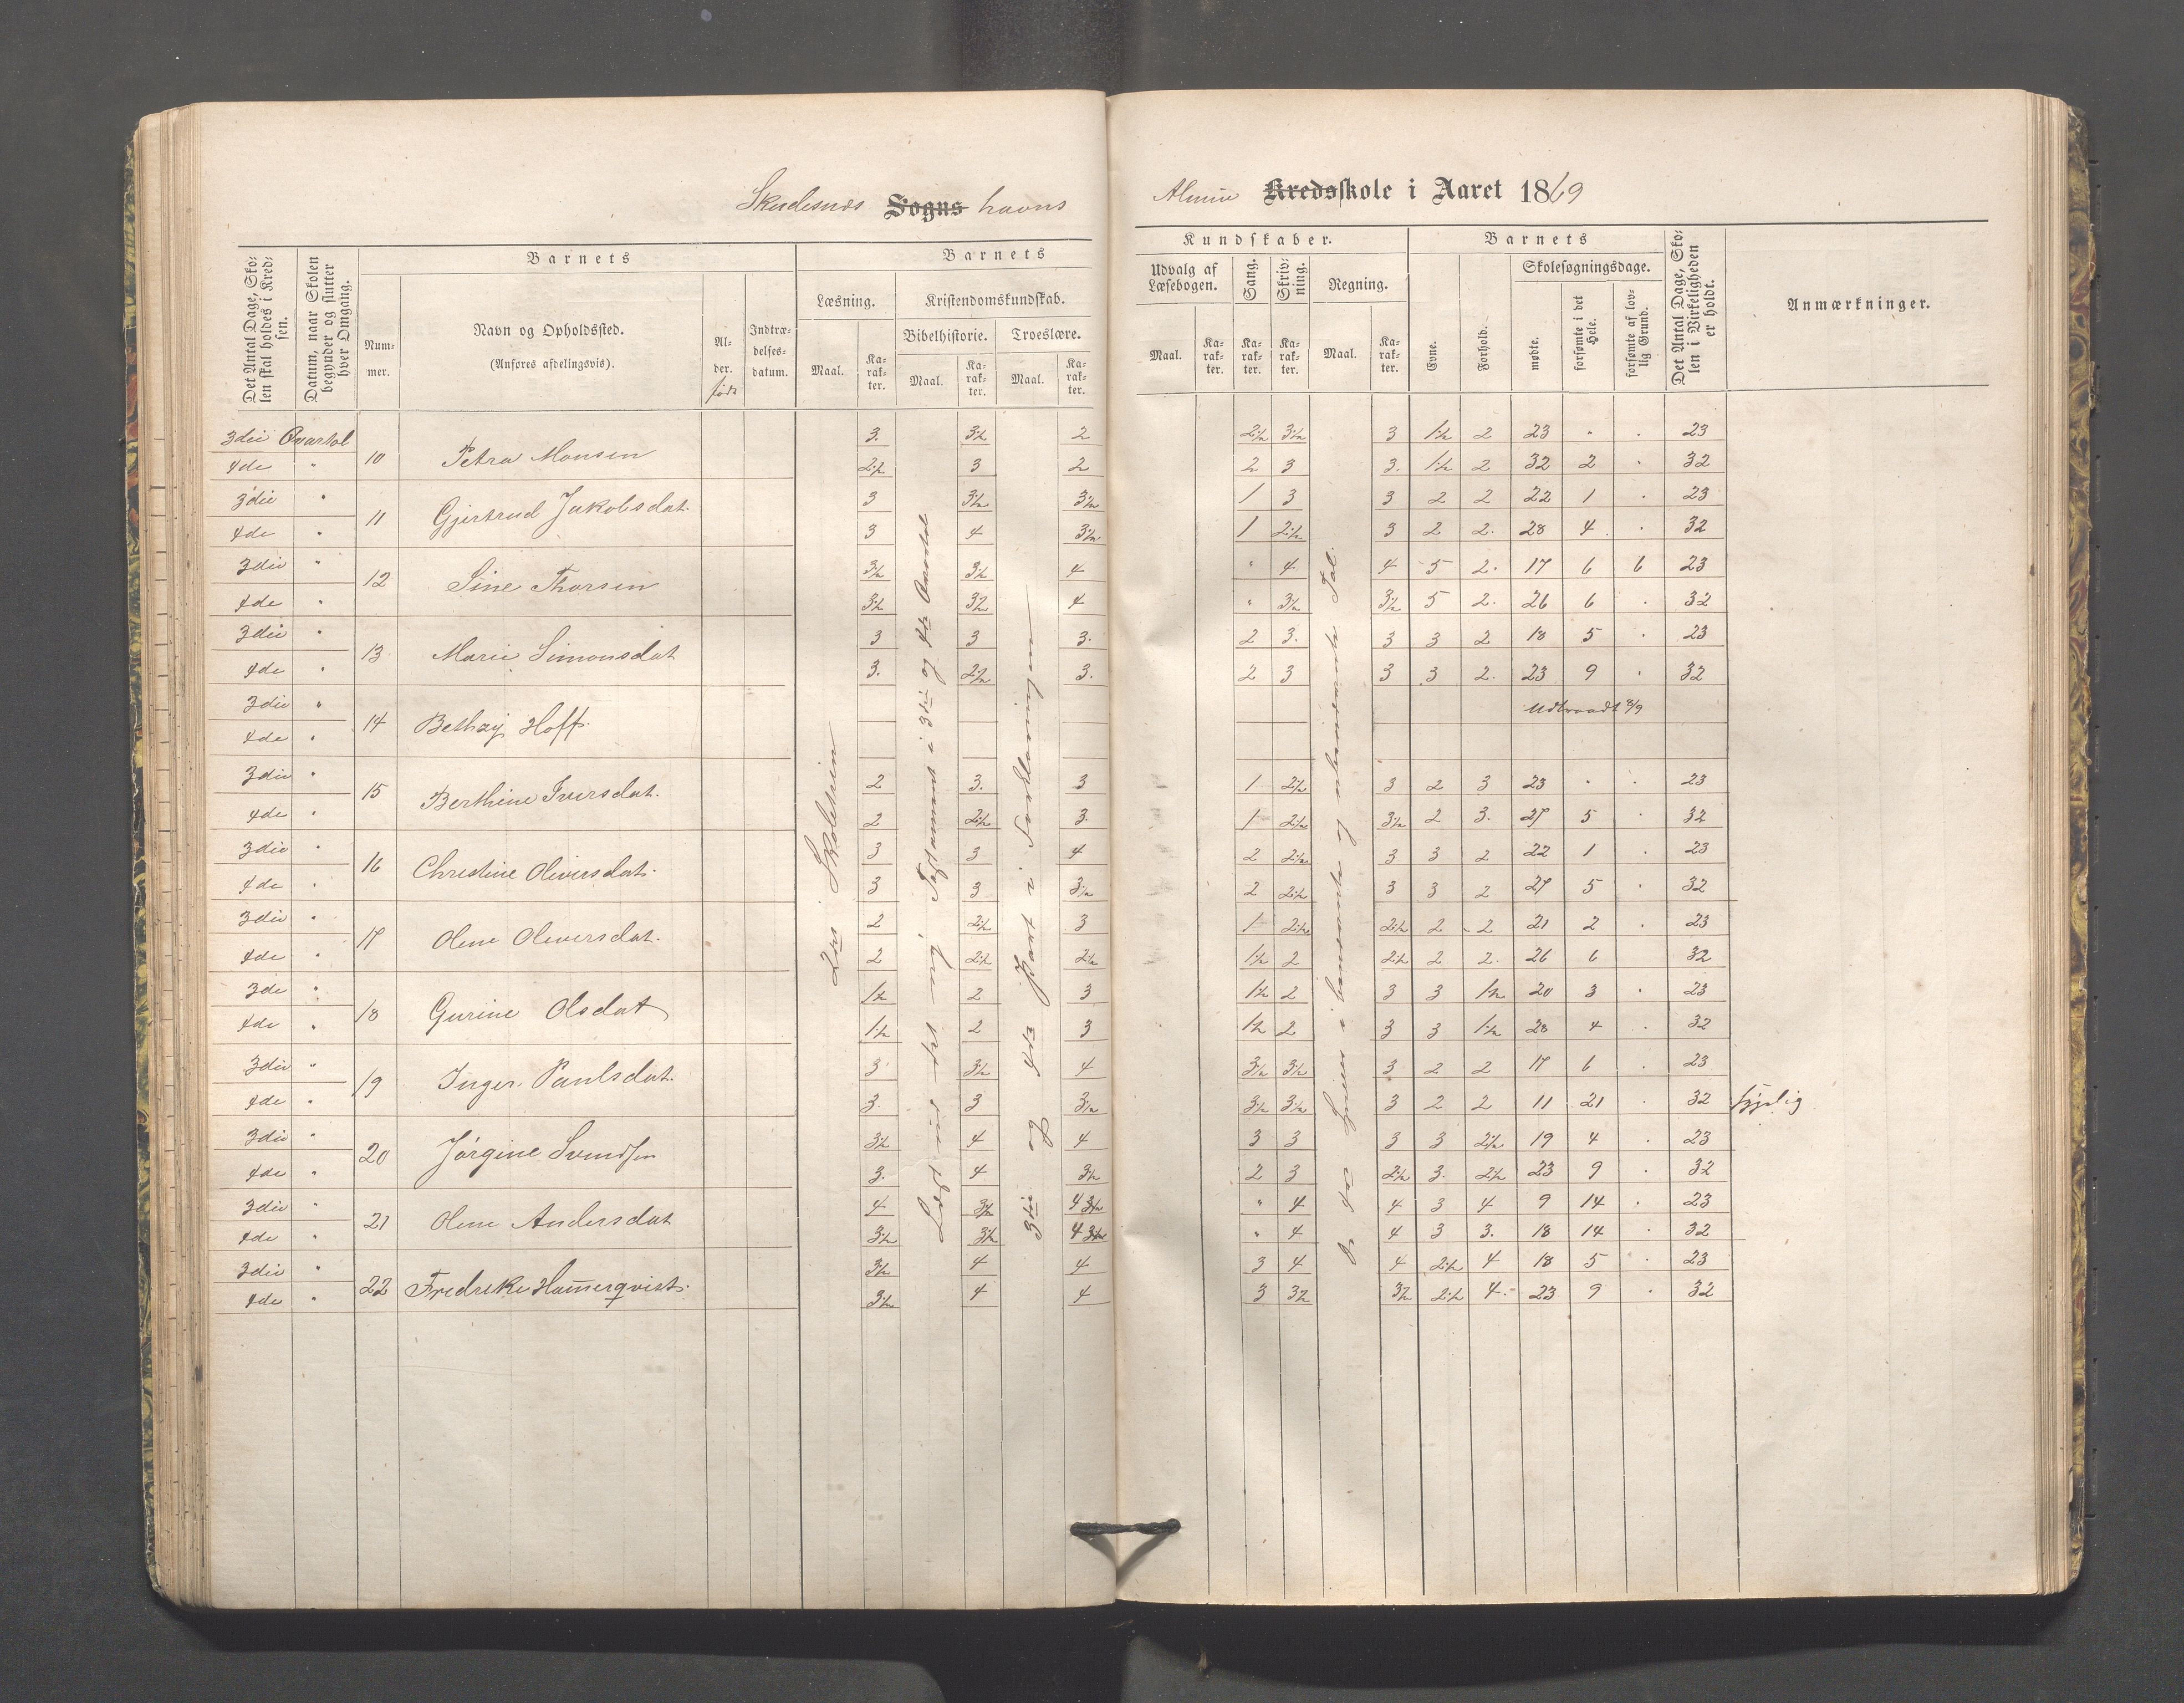 Skudesnes Sogns havns
Almue Kredsskole i Aaret 1869
Det Antal Dage, Skolen skal holdes i Kredsen.
Datum, naar Skolen begynder og slutter hver Omgang.
Barnets
Nummer.
Navn og Opholdssted.
(Anføres afdelingsvis).
Alder. født
Indtrædelsesdatum.
Barnets
Læsning.
Kristendomskundskab.
Bibelhistorie. Troeslære.
Maal. Karakter. Maal. Karakter. Maal. Karakter.
Kundskaber.
Udvalg af Læsebogen. Sang. Skrivning. Regning.
Maal. Karakter. Karakter. Karakter. Maal. Karakter.
Barnets
Evne. Forhold. Skolesøgningsdage.
mødte. forsømte i det Hele. forsømte af lovlig Grund.
Det Antal Dage, Skolen i Virkeligheden er holdt.
Anmærkninger.
3die Qvartal 10 Petra Monsen 3. 3½ 2 2½ 3½ 3 1½ 2 23 " . 23
4de " 2½ 3 2 2 3 3. 1½ 2 32 2 . 32
3die " 11 Gjertrud Jakobsdat. 3 3½ 3½ 1 3 3 2 2 22 1 . 23
4de " 3 4 3½ 1 2½ 3 2 2. 28 4 . 32
3die " 12 Sine Thorsen 3½ 3½ 4 " 4 4 5 2. 17 6 6 23
4de " 3½ 3½ 4 " 3½ 3½ 5 2. 26 6 . 32
3die " 13 Marie Simonsdat 3 3 3. 2 3. 3 3 2 18 5 . 23
4de " 3. 2½ 3. 2 3 3 3 2. 23 9 . 32
3die " 14 Bethzy Hoff. Udtraadt 8/9
4de "
3die " 15 Berthine Iversdat. 2 3. 3 1 2½ 3 2 3 23 . . 23
4de " 2 2½ 3. 1 2½ 3½ 2 3. 27 5 . 32
3die " 16 Christine Oliversdat. 3 3 4 2 2½ 3 3 2 22 1 . 23
4de " 3 3 3½ 2 2½ 3 3 2 27 5 . 32
3die " 17 Olene Oliversdat. 2 2½ 3 1 2½ 2½ 2 2 21 2 . 23
4de " 2 2½ 2½ 1½ 2 2½ 2 2. 26 6 32
3de " 18 Gurine Olsdat 1½ 2 3 1½ 2 3 3 1½ 20 3 . 23
4de " 1½ 2 3 1½ 2 3 3 1½ 28 4 . 32
3die " 19 Inger Paulsdat. 3 3½ 4 3½ 3½ 3 2 2 17 6 23
4de " 3. 3 3½ 3½ 3½ 3 2 2 11 21 . 32 sygelig
3die " 20 Jørgine Svendsen 3½ 4 4 3 3 3 3 2½ 19 4 . 23
4de " 3. 4 3½ 2 3 2½ 3. 2½ 23 9 . 32
3die " 21 Olene Andersdat 4 3½ 4 3½ " 4 4 3 4 9 14 . 23
4de " 3½ 3½ 4 3½ " 4 4 3 3. 18 14 . 32
3die " 22 Fredreke Hamerqvist. 3½ 4 4 3 4 4 2½ 4 18 5 . 23
4de " 3½ 4 4 3 3½ 3½ 2½ 4. 23 9 . 32
2det Skoletrin
Læst ud det ny Testamente i 3die og 4de Qvartal
3die og 4de Part i Forklaringen
De 4 Species i benævnte og ubenævnte Tal.